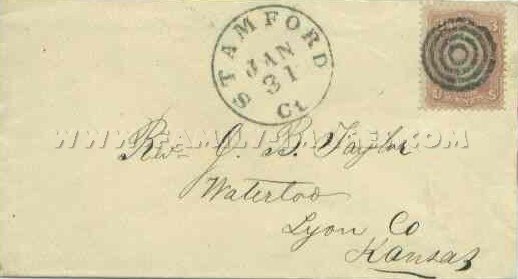 STAMFORD
JAN
31
Ct
WWW.FAMILYIMAGES.COM
Rev. J. B. Taylor
Waterloo
Lyon Co
Kansas